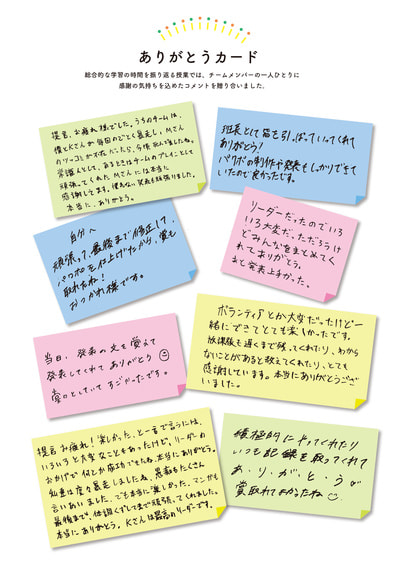 ありがとうカード
総合的な学習の時間を振り返る授業では、チームメンバーの一人ひとりに
感謝の気持ちを込めたコメントを贈り合いました。
提言、お疲れ様でした。うちのチームは、
僕とKさんが毎回のごとく暴走し、Mさん
のツッコミが
常識人として、あるときはチームのブレインとして
頑張ってくれたMさんには本当に
感謝します。 発表も頑張りました。
本当に、ありがとう。
班長として皆を引っぱっていってくれて
ありがとう!
パワポの制作や発表もしっかりできて
いたので良かったです。
自分へ
頑張って、最後まで修正して、
パワポを仕上げたから、賞も
取れたね!
おつかれ様です。
リーダーだったのでいろ
いろ大変だっただろうけ
どみんなをまとめてく
れてありがとう。
また発表上手かった。
当日、発表の文を覚えて
発表してくれてありがとう
堂々としていてすごかったです。
ボランティアとか大変だったけど一
緒にできてとても楽しかったです。
放課後も遅くまで残ってくれたり、わから
ないことがあると教えてくれたり、とても
感謝しています。本当にありがとうござ
いました。
提言お疲れ!楽しかった、と一言で言うには、
いろいろと大変なこともあったけど、リーダーの
おかげで何とか成功できたね。本当にありがとう。
私達は度々暴走しましたね。愚痴もたくさん
言いあいました。でも本当に楽しかった。マンガも
最後まで、体調くずしてまで頑張ってくれました。
本当にありがとう。Kさんは最高のリーダーです。
積極的にやってくれたり
いつも記録を取ってくれて
あ・り・が・と・う
賞取れてよかったね